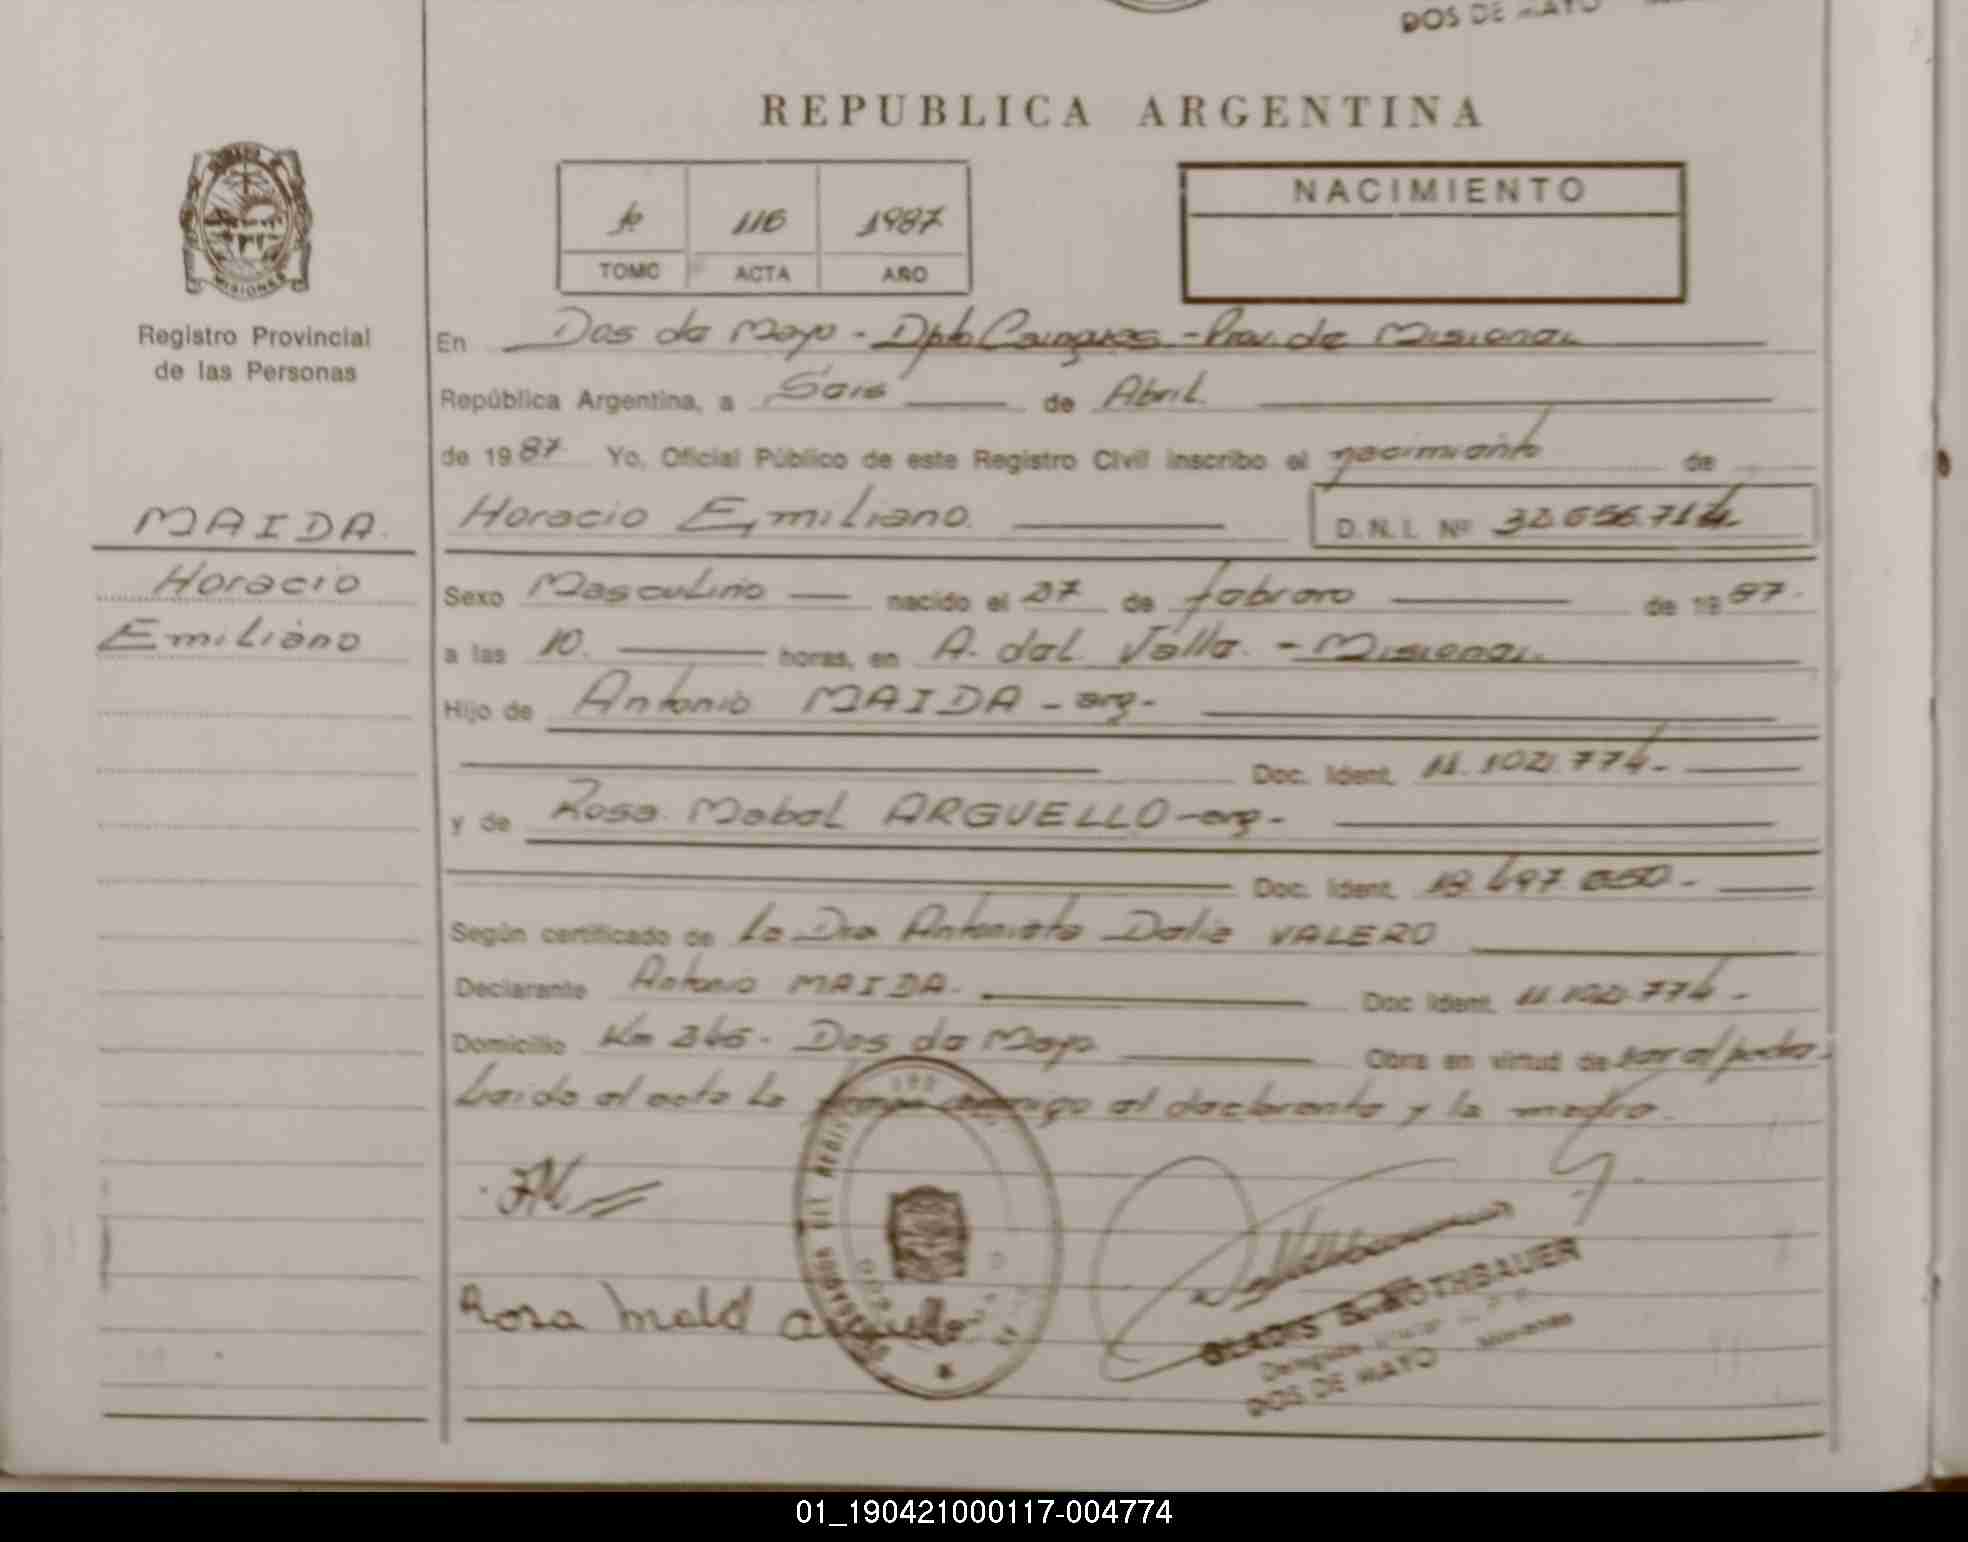 DOS DE MAYO
REPUBLICA ARGENTINA
1º 116 1987
TOMO ACTA AÑO
NACIMIENTO
MISIONES
Registro Provincial
de las Personas
En Dos de Mayo - Dpto Cainguas - Prov. de Misiones
República Argentina, a Seis de Abril.
de 1987. Yo, Oficial Público de este Registro Civil inscribo el nacimiento de
MAIDA.
Horacio Emiliano. D.N.I. Nº 32.656.714
Horacio
Emiliano
Sexo Masculino nacido el 27 de febrero de 1987.
a las 10. horas, en A. del Valle. - Misiones.
Hijo de Antonio MAIDA - arg-
Doc. Ident. 11.102.774-
y de Rosa Mabel ARGUELLO-arg-
Doc. Ident. 18.497.050-
Según certificado de La Dra Antonieta Delia VALERO
Declarante Antonio MAIDA. Doc Ident. 11.102.774-
Domicilio Km 265. Dos de Mayo Obra en virtud de ser el padre.
Leido el acta la firman conmigo el declarante y la madre.
AM
Rosa Mabel Arguello
GLADIS B. ROTHBAUER
DOS DE MAYO Misiones
01_190421000117-004774